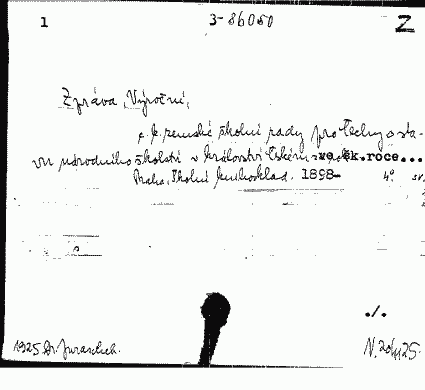 1 3-86050 Z
Zpráva, Výroční,
c. k. zemské školní rady pro Čechy o sta-
vu národního školství v království Českém ve šk.roce...
Praha, Školní knihosklad. 1898- 4° sv.
./.
1925 Dr. Juraschek. N. 20/II 25.